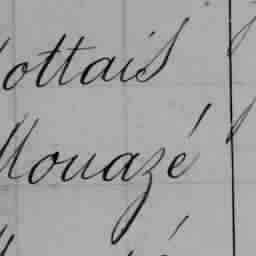 Mottais
Mouazé